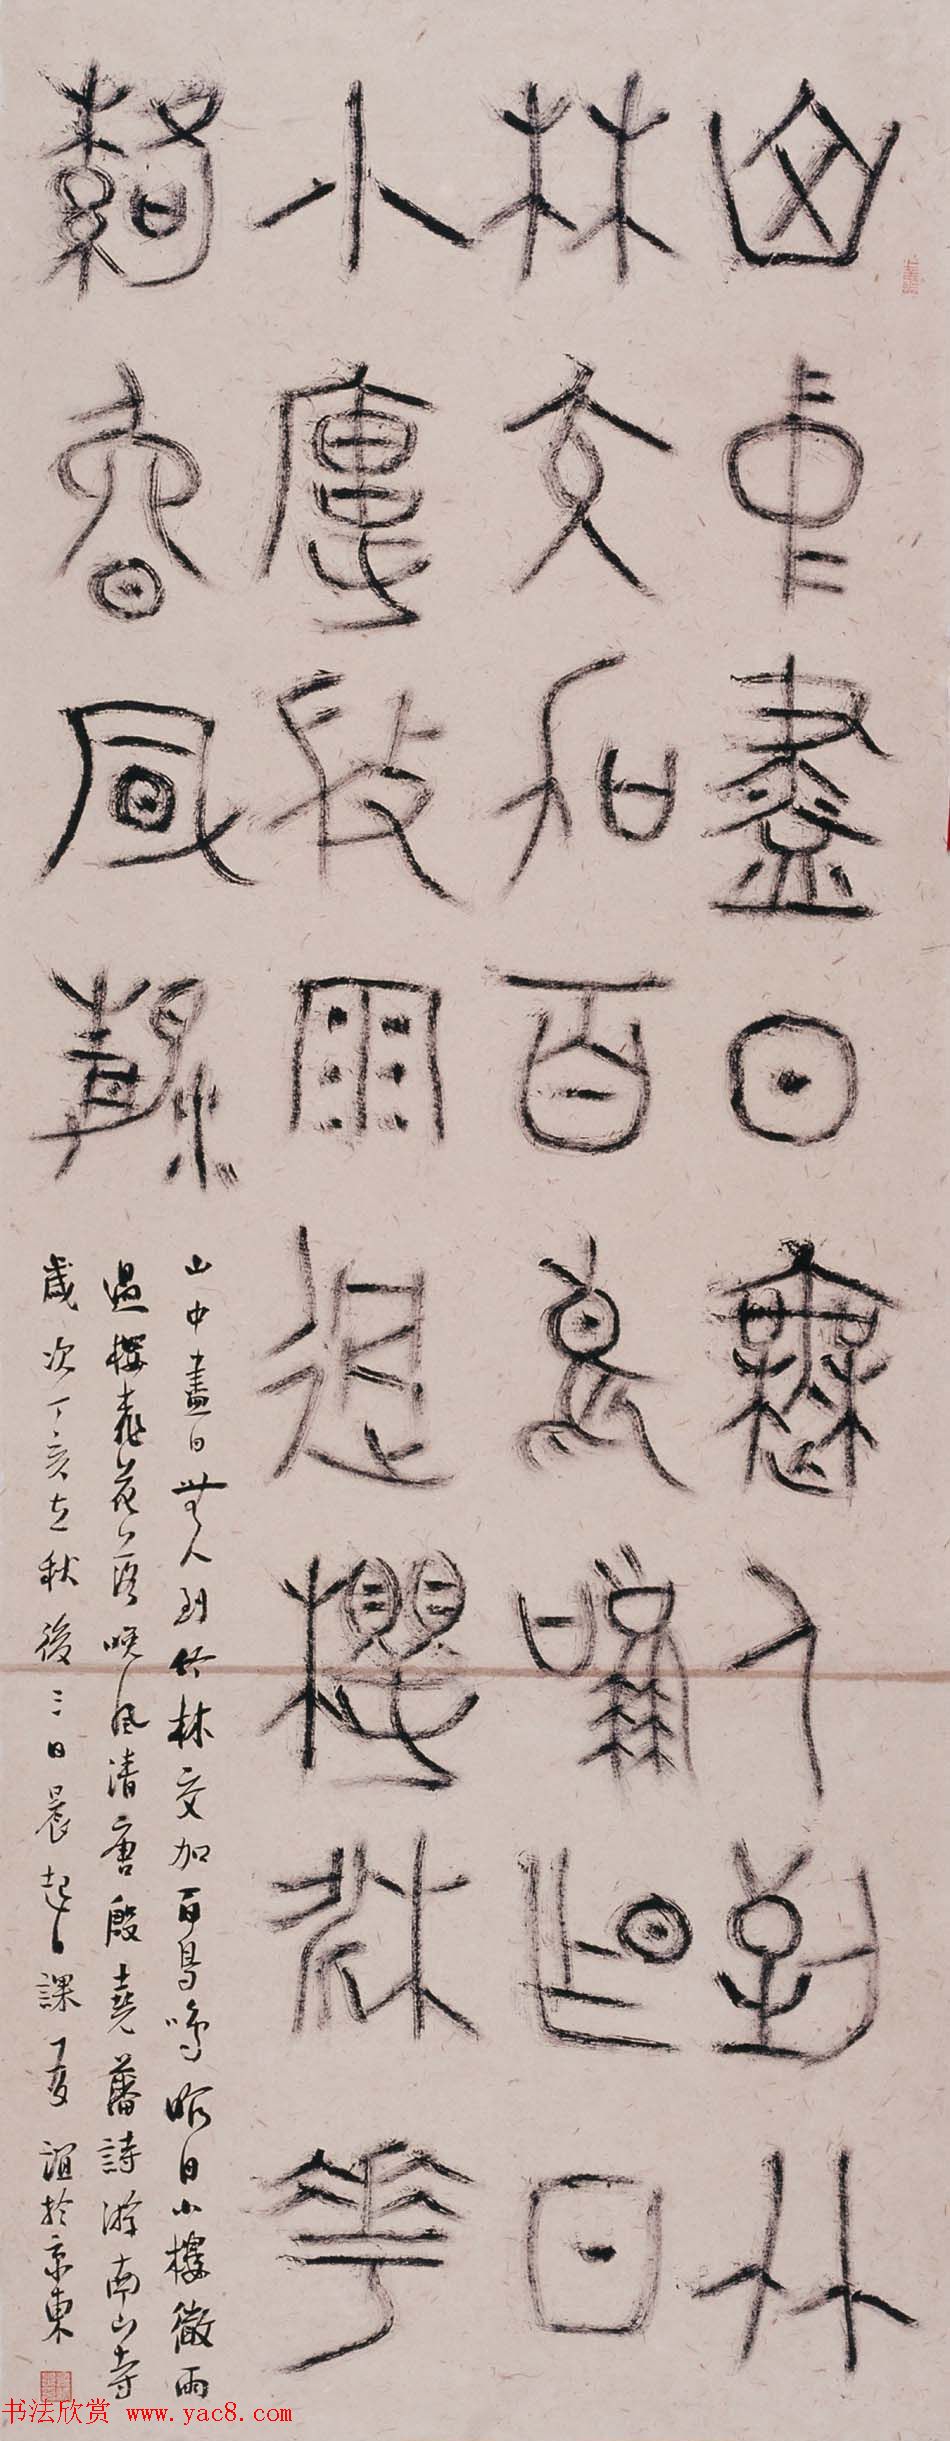 山中盡日無人到竹
林交加百鳥鳴昨日
小樓微雨過櫻桃花
落晚風晴
山中盡日無人到竹林交加百鳥鳴昨日小樓微雨
過櫻桃花落晚風清唐殷堯藩詩游南山寺
歲次丁亥立秋後三日晨起日課 夏誼於京東
书法欣赏 www.yac8.com